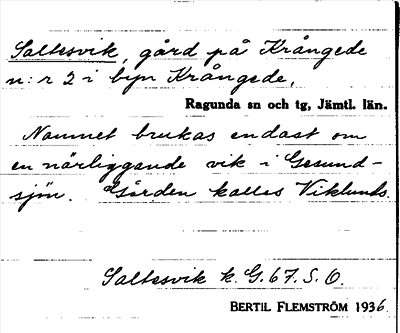 Saltesvik, gård på Krångede
n:r 2 i byn Krångede,
Ragunda sn och tg, Jämtl. län.
Namnet brukas endast om
en närliggande vik i Gesund-
sjön. Gården kallas Viklunds.
Saltesvik k. G. 67. S. O.
BERTIL FLEMSTRÖM 1936.